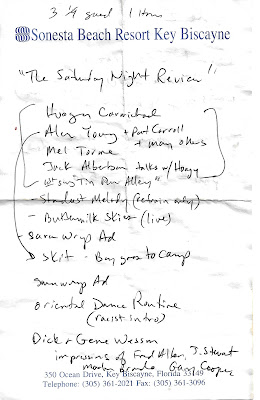 3 1/4 speed 1 Hour
Sonesta Beach Resort Key Biscayne
"The Saturday Night Review"
Hoagy Carmichael
Alan Young + Pat Carroll
+ many others
Mel Torme
Jack Alberton talks w/ Hoagy
"Tin Pan Alley"
- Stardust Melody (refrain only)
- Buttermilk Skies (live)
- saran wrap Ad
- Skit - Boy goes to camp
saran wrap Ad
oriental Dance Routine
(racist intro)
Dick & Gene Wesson
impressions of Fred Allen, J. Stewart
Marlon Brando Gary Cooper
350 Ocean Drive, Key Biscayne, Florida 33149
Telephone: (305) 361-2021 Fax: (305) 361-3096